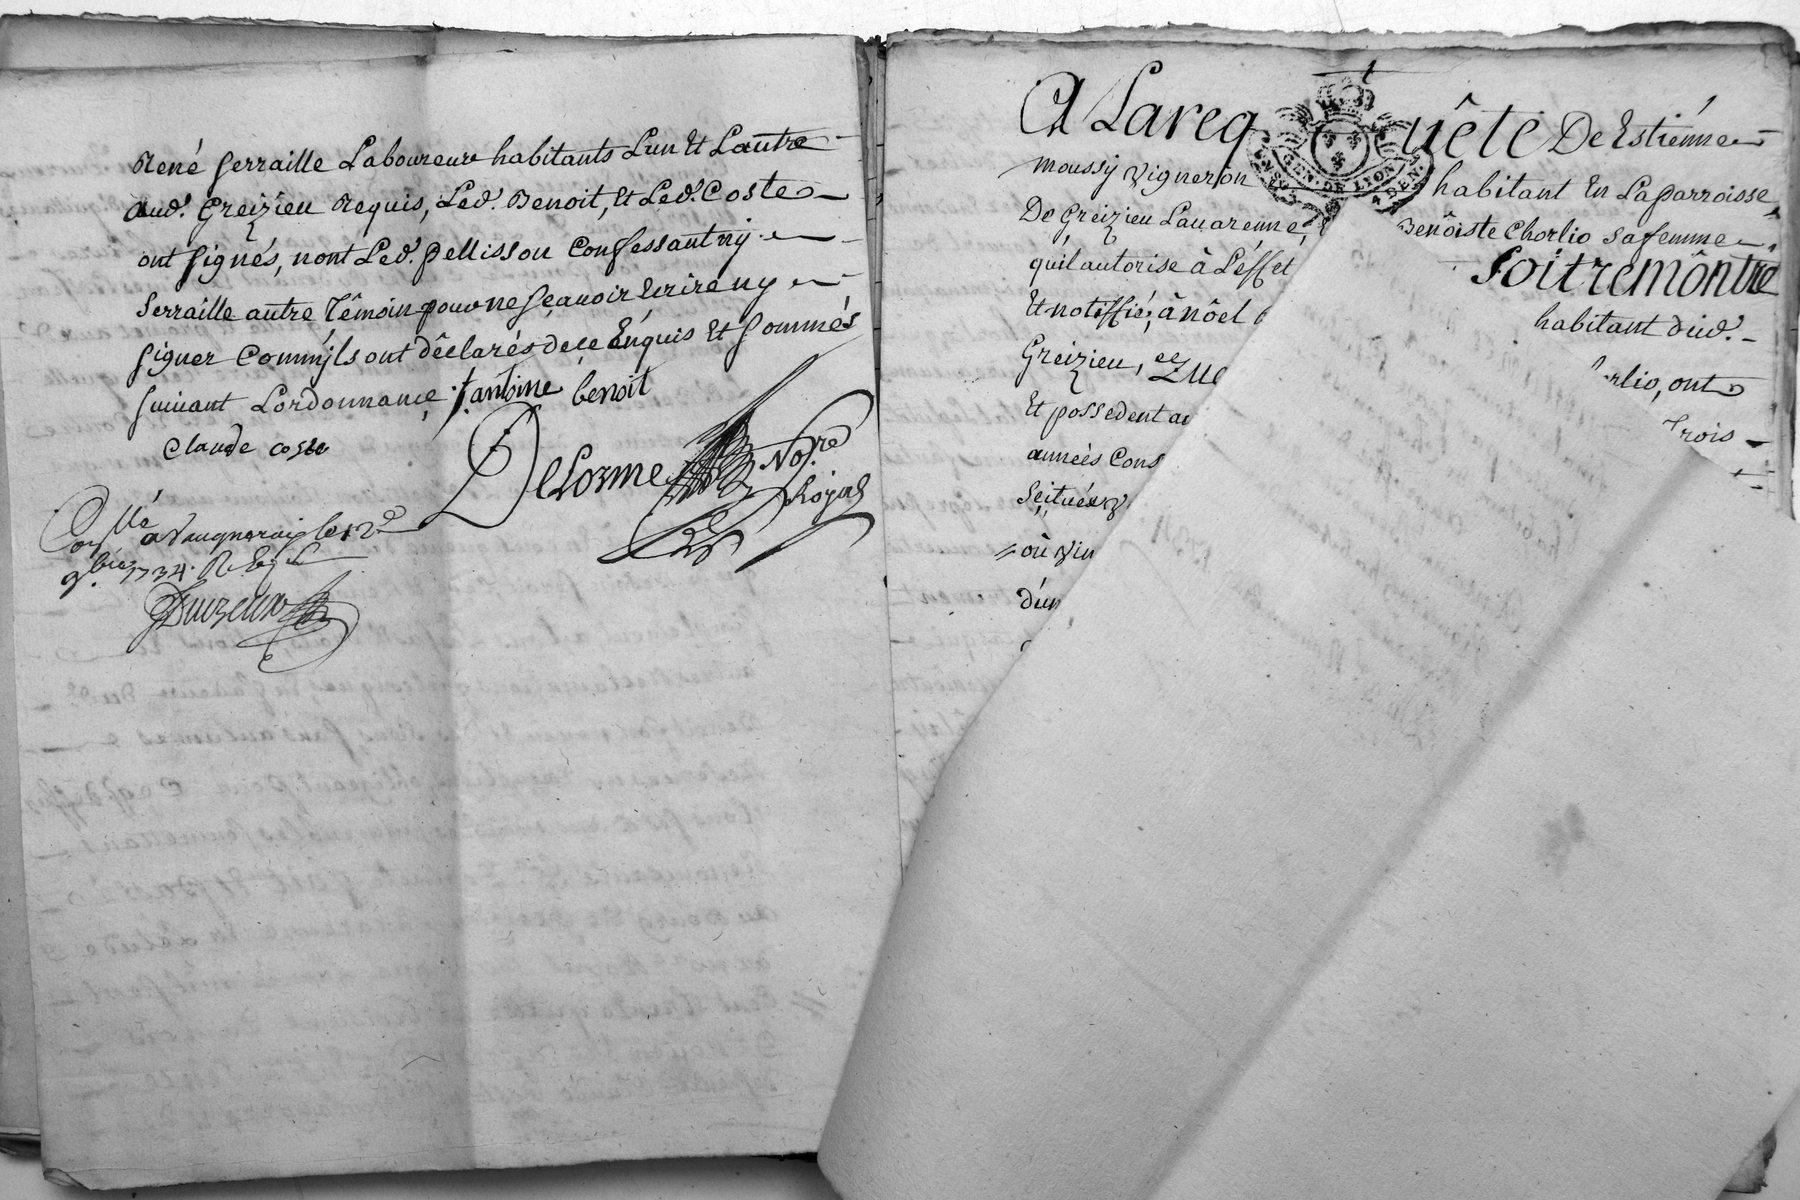 René Serraille Laboureur habitants Lun Et Lautre
aud. Greizieu Requis, Led. Benoit, Et Led. Coste
ont signés, nont Led. Pellisson Confessant ny
Serraille autre Témoin pour ne sçavoir Ecrire ny
signer Commjls ont déclarés de ce Enquis Et sommés
suivant Lordonnance. antoine benoit
Claude coste
DeLorme No.re
Royal
Con.llé a Vaugneray le 12e
9bre 1734. R
A Lareq uête De Estiénne
moussy Vigneron habitant En Laparroisse
De Greizieu Lauarenne, Benôiste Chorlio sa femme
quil autorise à L'éffet Soit remôntré
Et notiffié, à nôel habitant dud.
Greizieu, rlio, ont
Et possedent au Trois
années Cons
Scituées
où Vin
d'un
GEN. DE LYON
DEN.